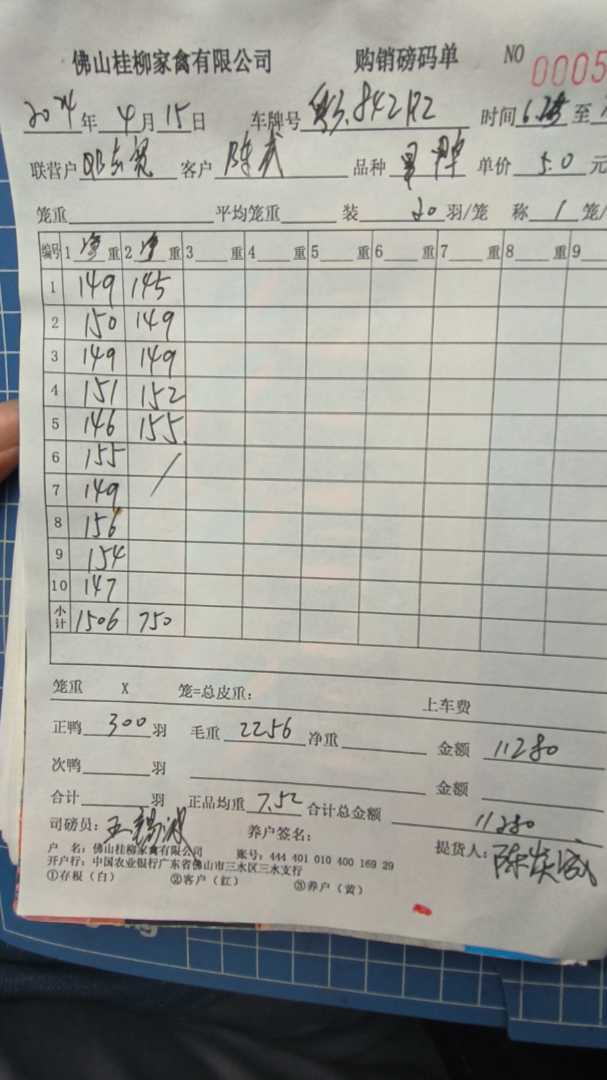 佛山桂柳家禽有限公司 购销磅码单 NO 0005
2024年4月15日 车牌号 842 时间 至
联营户 客户 陈武 品种 单价 5.0 元
笼重 平均笼重 装 20 羽/笼 称 1 笼/
编号 1 净 重 2 净 重 3 重 4 重 5 重 6 重 7 重 8 重 9
1 149 145
2 150 149
3 149 149
4 151 152
5 146 155
6 155
7 149
8 156
9 154
10 147
小计 1506 750
笼重 X 笼=总皮重: 上车费
正鸭 300 羽 毛重 2256 净重 金额 11280
次鸭 羽 金额
合计 羽 正品均重 7.52 合计总金额 11280
司磅员: 王锡波 养户签名: 提货人: 陈
户 名: 佛山桂柳家禽有限公司 账号: 444 401 010 400 169 29
开户行: 中国农业银行广东省佛山市三水区三水支行
①存根（白） ②客户（红） ③养户（黄）